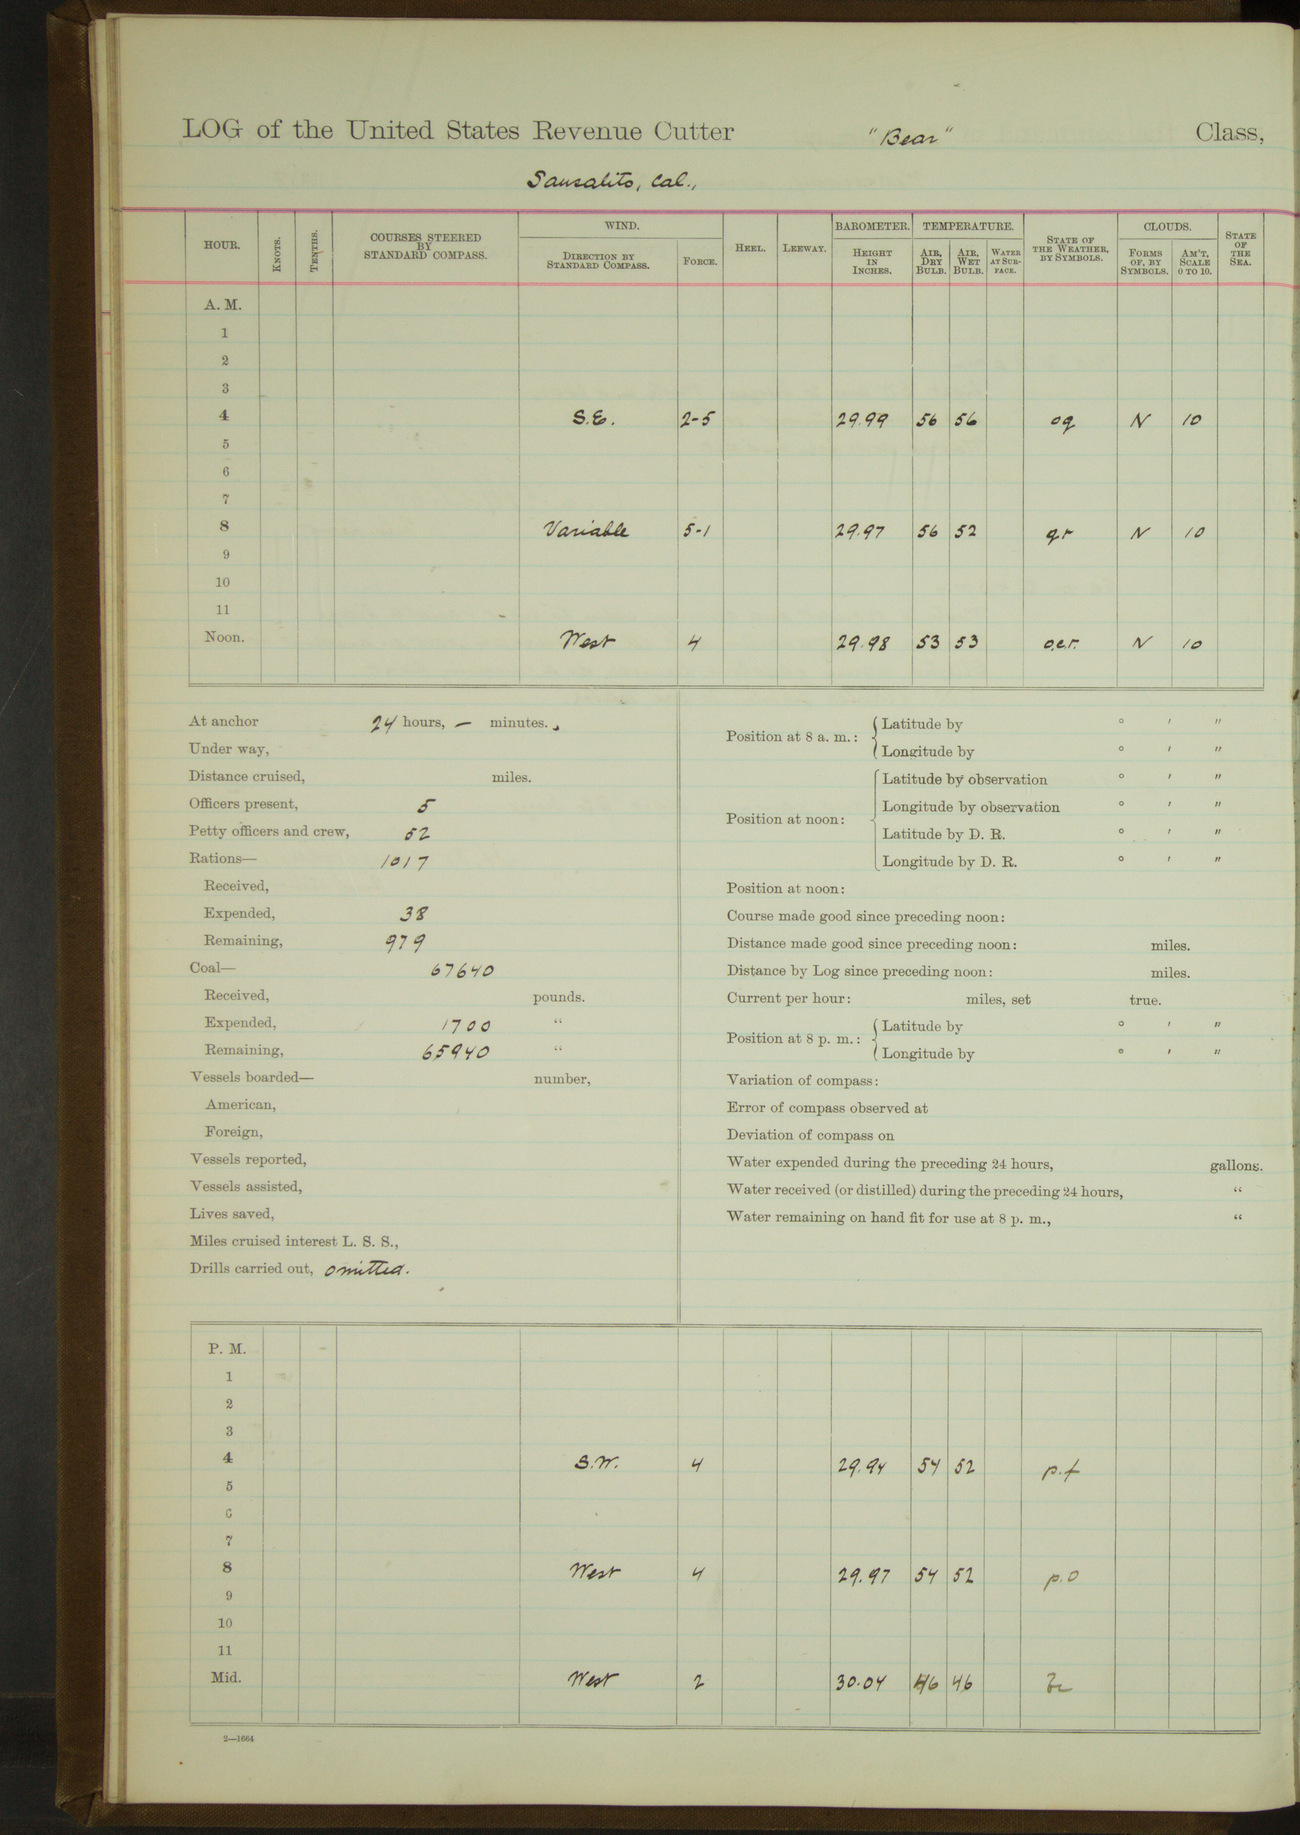 LOG of the United States Revenue Cutter "Bear" Class,
Sausalito, Cal.,
HOUR. KNOTS. TENTHS. COURSES STEERED BY STANDARD COMPASS. WIND. DIRECTION BY STANDARD COMPASS. FORCE. HEEL. LEEWAY. BAROMETER. HEIGHT IN INCHES. TEMPERATURE. AIR, DRY BULB. AIR, WET BULB. WATER AT SURFACE. STATE OF THE WEATHER, BY SYMBOLS. CLOUDS. FORMS OF, BY SYMBOLS. AM'T, SCALE 0 TO 10. STATE OF THE SEA.
A. M.
1
2
3
4 S.E. 2-5 29.99 56 56 oq N 10
5
6
7
8 Variable 5-1 29.97 56 52 qr N 10
9
10
11
Noon. West 4 29.98 53 53 o.c.r. N 10
At anchor 24 hours, — minutes.
Under way,
Distance cruised, miles.
Officers present, 5
Petty officers and crew, 52
Rations— 1017
Received,
Expended, 38
Remaining, 979
Coal— 67640
Received, pounds.
Expended, 1700 "
Remaining, 65940 "
Vessels boarded— number,
American,
Foreign,
Vessels reported,
Vessels assisted,
Lives saved,
Miles cruised interest L. S. S.,
Drills carried out, omitted.
Position at 8 a. m.: Latitude by ° ' "
Longitude by ° ' "
Position at noon: Latitude by observation ° ' "
Longitude by observation ° ' "
Latitude by D. R. ° ' "
Longitude by D. R. ° ' "
Position at noon:
Course made good since preceding noon:
Distance made good since preceding noon: miles.
Distance by Log since preceding noon: miles.
Current per hour: miles, set true.
Position at 8 p. m.: Latitude by ° ' "
Longitude by ° ' "
Variation of compass:
Error of compass observed at
Deviation of compass on
Water expended during the preceding 24 hours, gallons.
Water received (or distilled) during the preceding 24 hours, "
Water remaining on hand fit for use at 8 p. m., "
P. M.
1
2
3
4 S.W. 4 29.94 54 52 p.f
5
6
7
8 West 4 29.97 54 52 p.o
9
10
11
Mid. West 2 30.04 46 46
2—1664